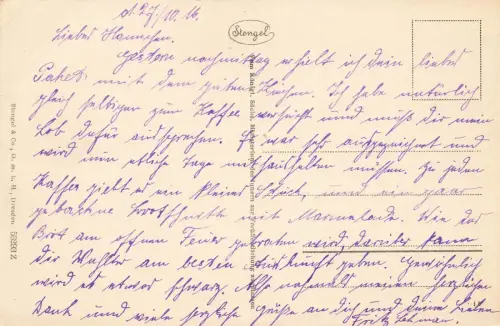 d. 27/10.16.
Stengel
Liebes Hannchen.
Gestern nachmittag erhielt ich dein liebes
Paket mit dem guten Kuchen. Ich habe natürlich
gleich selbigen zum Kaffee versucht und muß dir mein
Lob dafür aussprechen. Er war sehr ausgezeichnet und
wird mir etliche Tage aushalten müssen. Zu jeden
Kaffee giebt es ein kleines Stück, und ein paar
gebackene Brotschnitte mit Marmelade. Wie das
Brot am offnen Feuer gebraten wird, darüber kann
der Walther am besten Auskunft geben. Gewöhnlich
wird es etwas schwarz. Also nochmals meinen herzlichen
Dank und viele herzliche Grüße an dich und deine Lieben
Fritz
Stengel & Co., G. m. b. H., Dresden